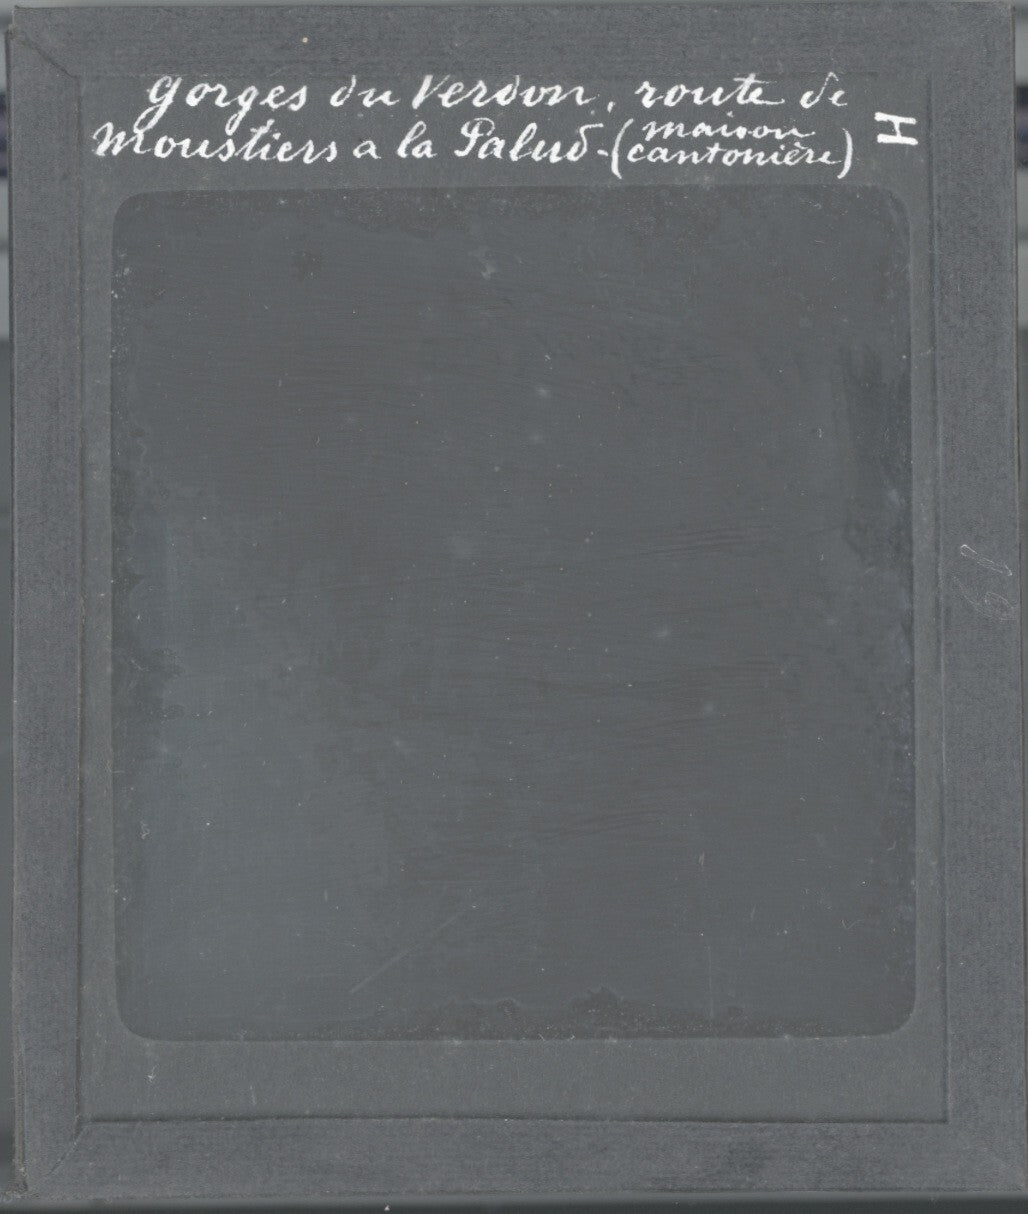 Gorges du Verdon, route de
Moustiers a la Palud - (maison
cantonière)
H
61